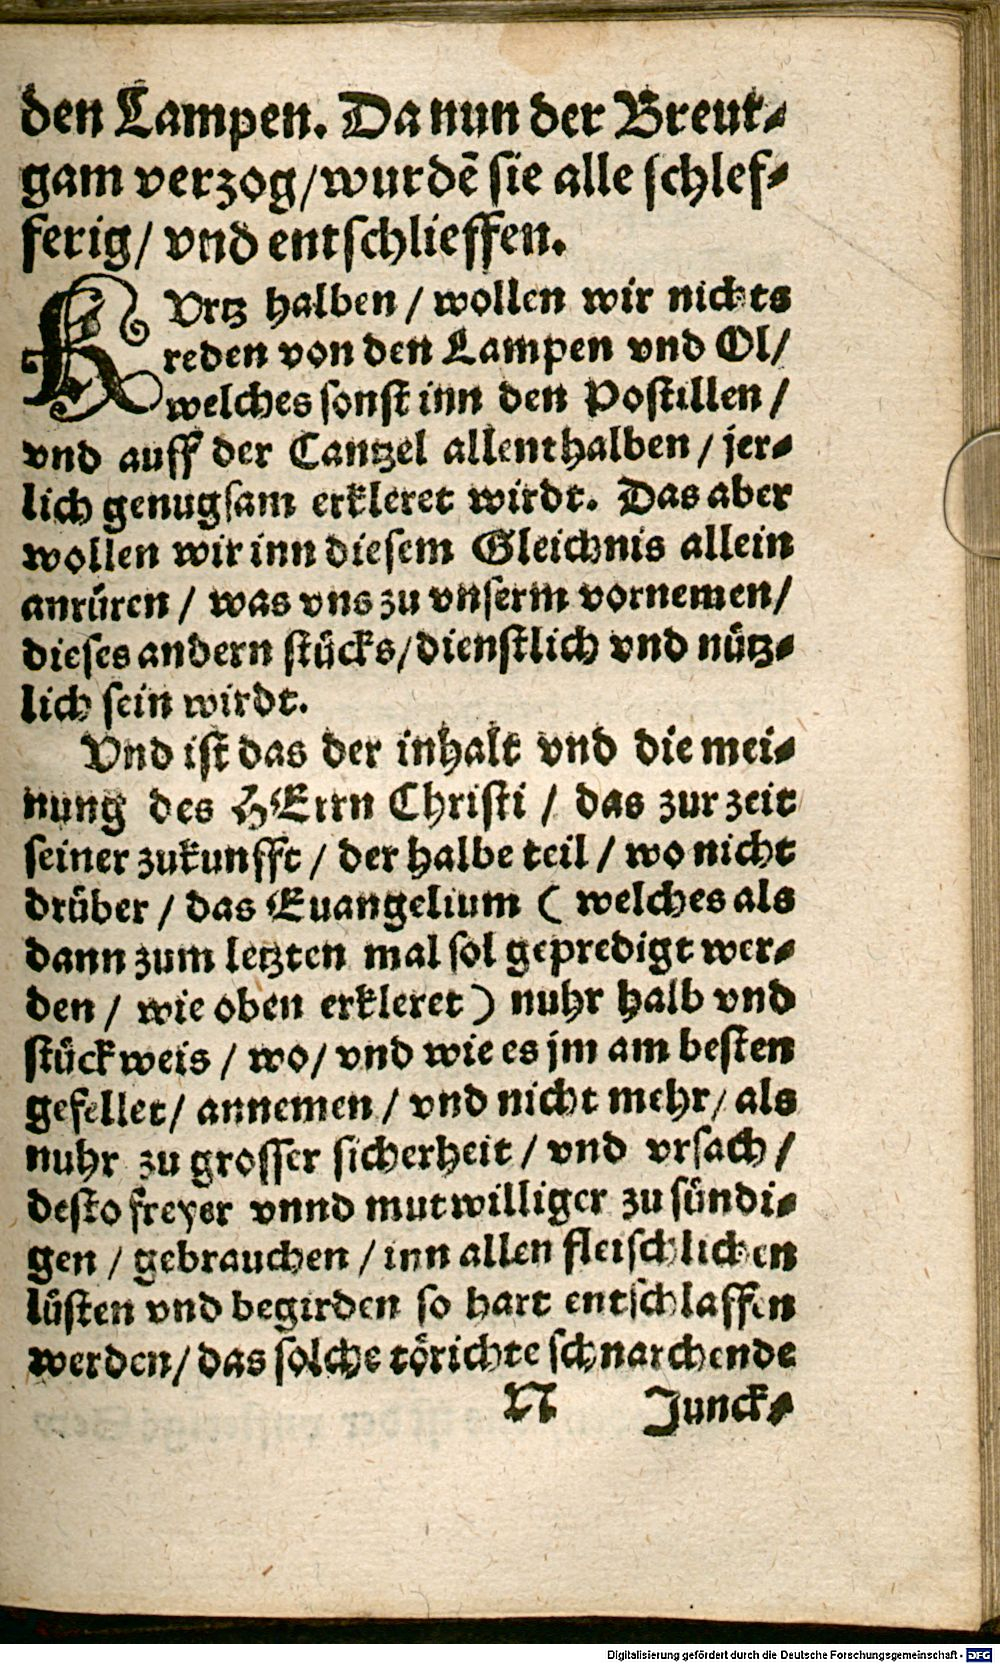 den Lampen. Da nun der Breut⸗
gam verzog/wurdē sie alle schlef⸗
ferig/ vnd entschlieffen.
KVrtz halben / wollen wir nichts
reden von den Lampen vnd Ol/
welches sonst inn den Postillen /
vnd auff der Cantzel allenthalben / jer⸗
lich genugsam erkleret wirdt. Das aber
wollen wir inn diesem Gleichnis allein
anrüren / was vns zu vnserm vornemen/
dieses andern stücks/dienstlich vnd nütz⸗
lich sein wirdt.
Vnd ist das der inhalt vnd die mei⸗
nung des HErrn Christi / das zur zeit
seiner zukunfft / der halbe teil / wo nicht
drüber / das Euangelium ( welches als
dann zum letzten mal sol gepredigt wer⸗
den / wie oben erkleret ) nuhr halb vnd
stückweis / wo/ vnd wie es jm am besten
gefellet/ annemen / vnd nicht mehr/ als
nuhr zu grosser sicherheit / vnd vrsach /
desto freyer vnnd mutwilliger zu sündi⸗
gen / gebrauchen / inn allen fleischlichen
lüsten vnd begirden so hart entschlaffen
werden/ das solche törichte schnarchende
N Junck⸗
Digitalisierung gefördert durch die Deutsche Forschungsgemeinschaft - DFG